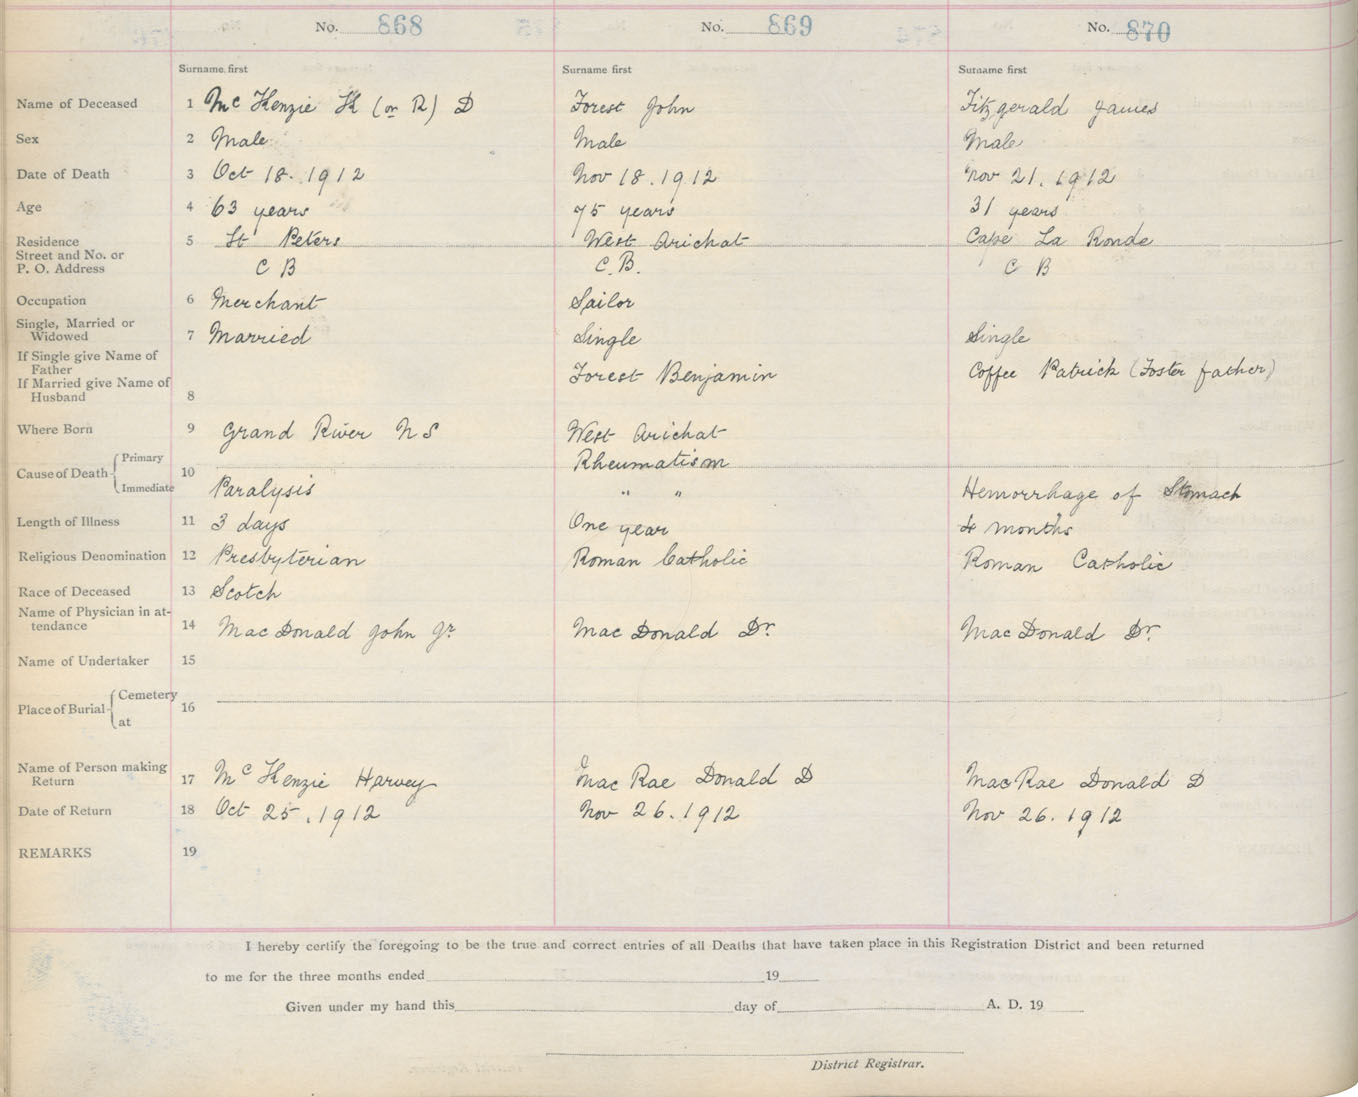 No. 868 No. 869 No. 870
Surname first Surname first Surname first
Name of Deceased 1 McKenzie K (or R) D Forest John Fitzgerald James
Sex 2 Male Male Male
Date of Death 3 Oct 18. 1912 Nov 18. 1912 Nov 21. 1912
Age 4 63 years 75 years 31 years
Residence 5 St Peters West Arichat Cape La Ronde
Street and No. or
P. O. Address C B C.B. C B
Occupation 6 Merchant Sailor
Single, Married or
Widowed 7 Married Single Single
If Single give Name of
Father Forest Benjamin Coffee Patrick (Foster father)
If Married give Name of
Husband 8
Where Born 9 Grand River N S West Arichat
Cause of Death Primary 10 Rheumatism
Immediate Paralysis " " Hemorrhage of Stomach
Length of Illness 11 3 days One year 4 months
Religious Denomination 12 Presbyterian Roman Catholic Roman Catholic
Race of Deceased 13 Scotch
Name of Physician in at-
tendance 14 MacDonald John Jr MacDonald Dr. MacDonald Dr.
Name of Undertaker 15
Place of Burial Cemetery 16
at
Name of Person making
Return 17 McKenzie Harvey MacRae Donald D MacRae Donald D
Date of Return 18 Oct 25. 1912 Nov 26. 1912 Nov 26. 1912
REMARKS 19
I hereby certify the foregoing to be the true and correct entries of all Deaths that have taken place in this Registration District and been returned
to me for the three months ended 19
Given under my hand this day of A. D. 19
District Registrar.